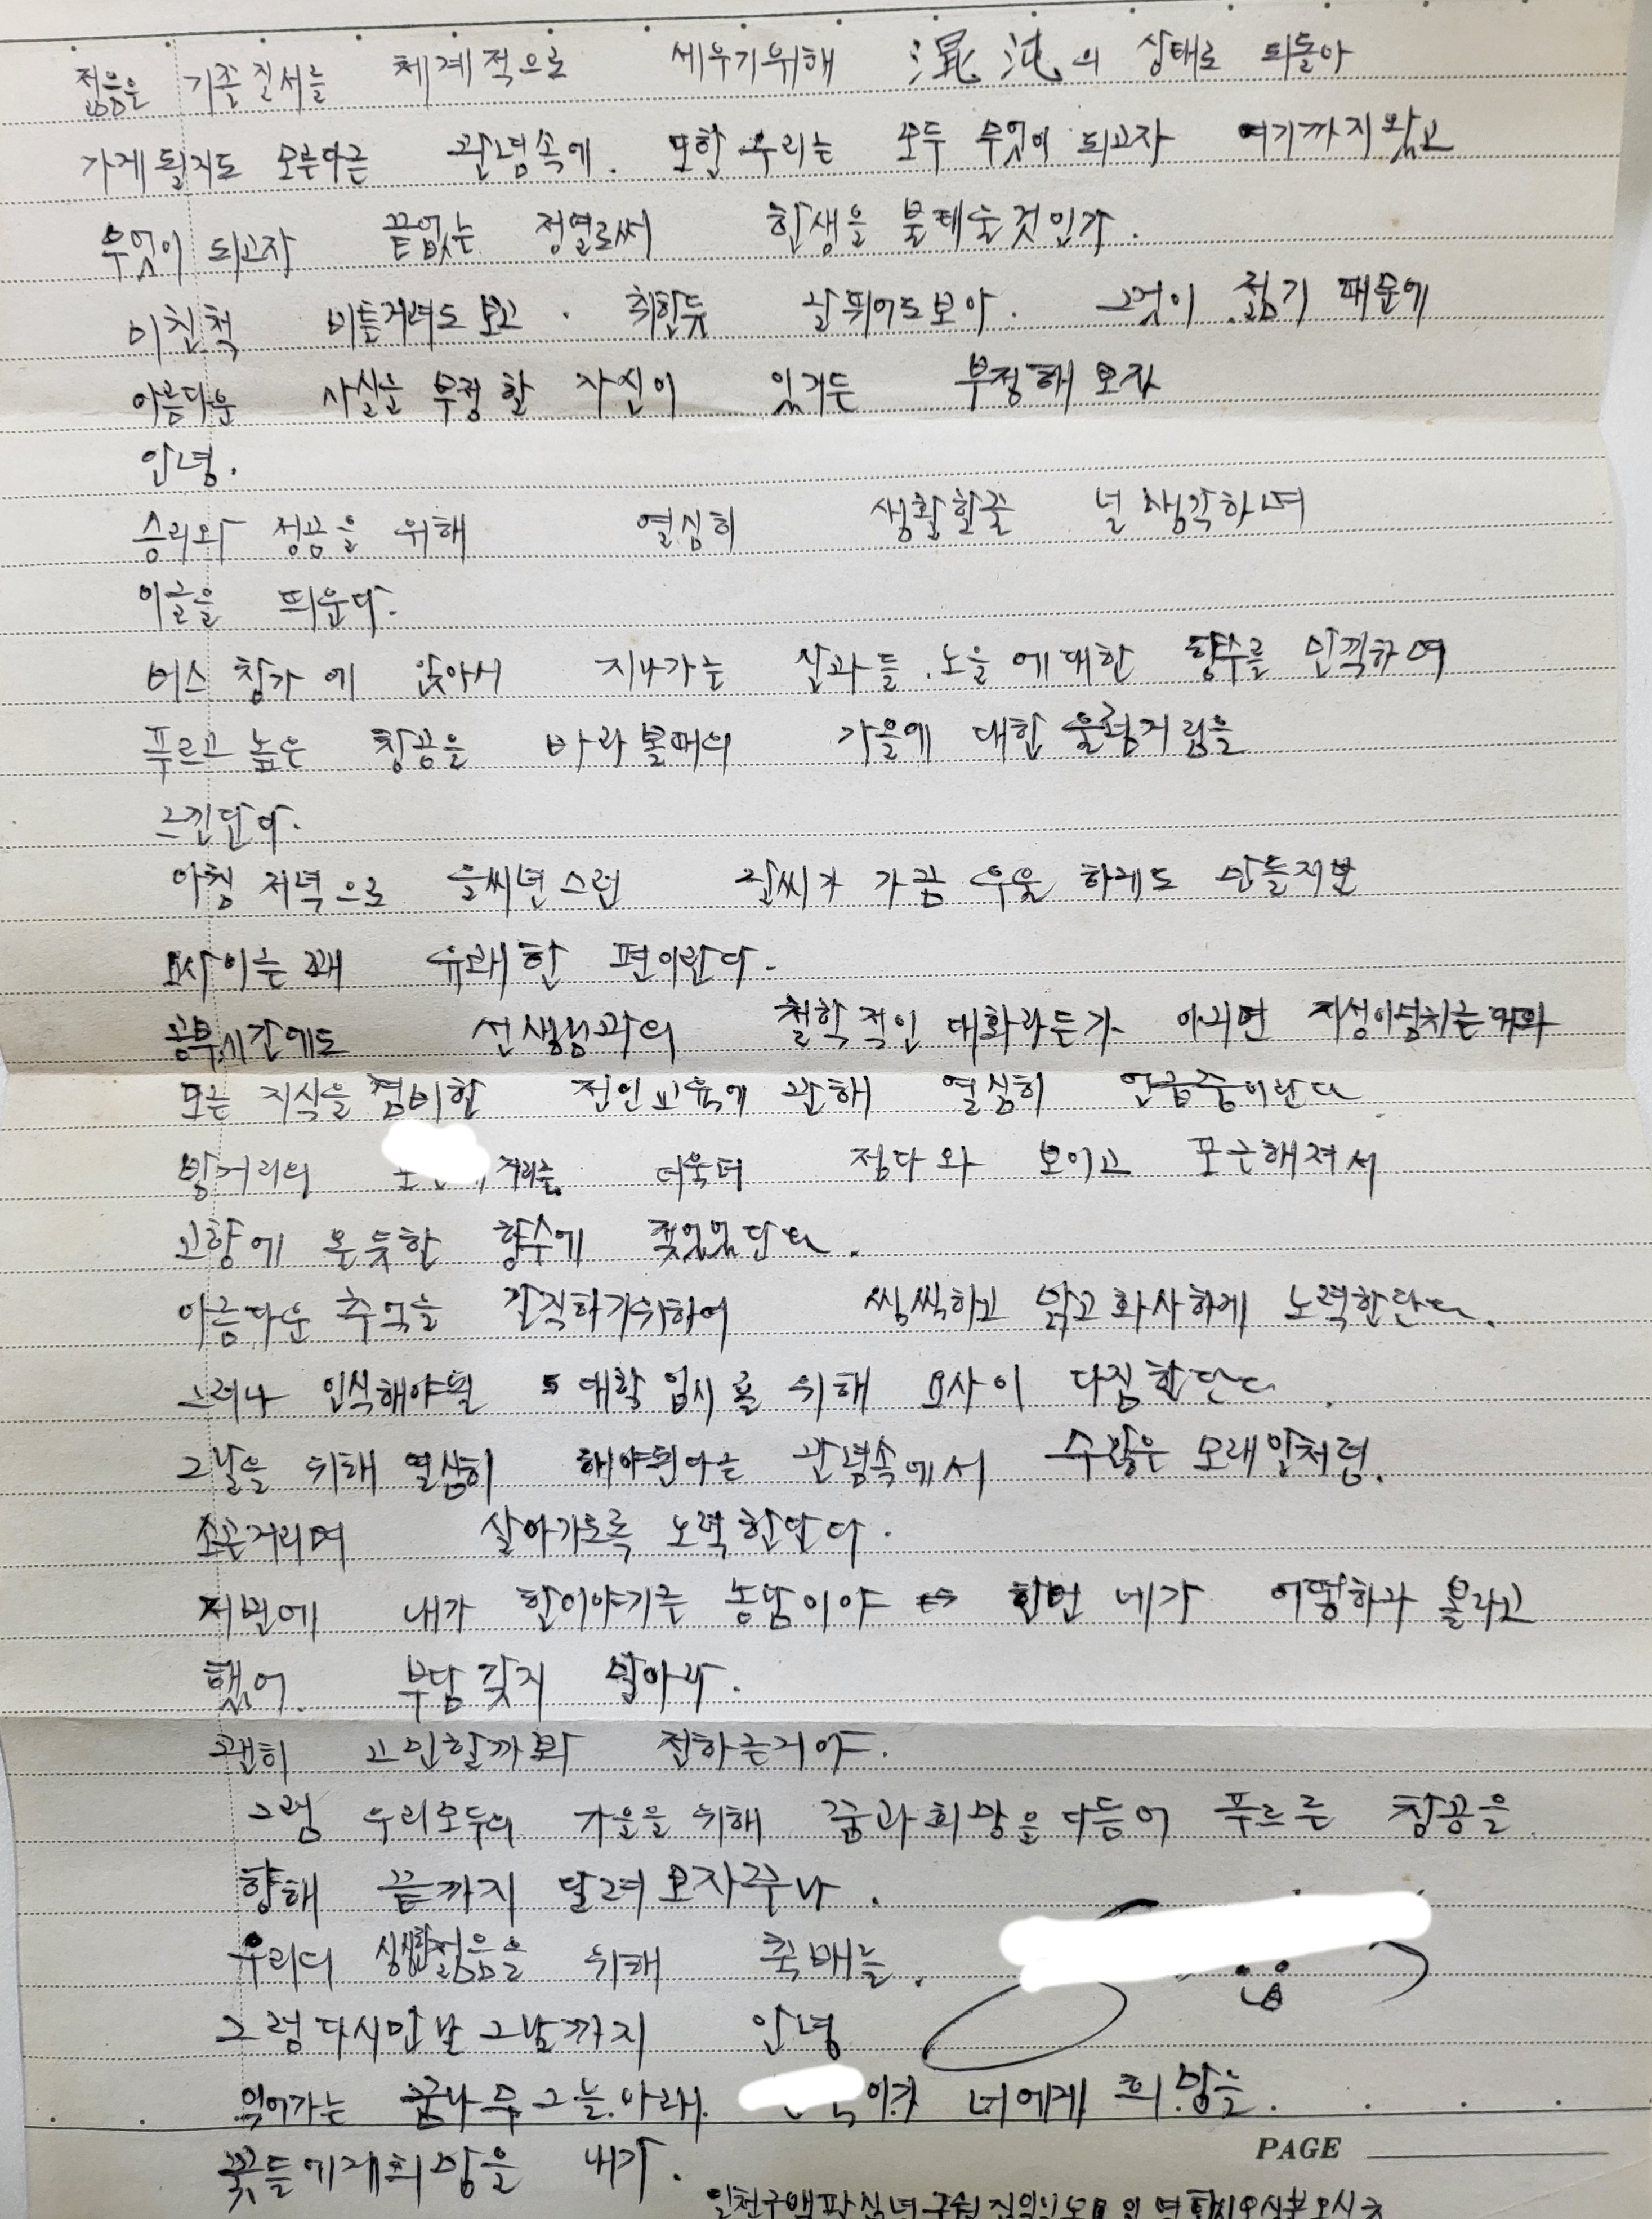 젊음은 기존질서를 체계적으로 세우기위해 混沌의 상태로 되돌아
가게 될지도 모른다는 관념속에. 또한 우리는 모두 무엇이 되고자 여기까지 왔고
무엇이 되고자 끝없는 정열로써 한생을 불태울것인가.
미친척 비틀거려도 보고. 취한듯 날뛰어도보아. 그것이 젊기 때문에
아름다운 사실을 부정할 자신이 있거든 부정해 보자
안녕.
승리와 성공을 위해 열심히 생활할줄 널 생각하며
이글을 띄운다.
버스 창가에 앉아서 지나가는 산과 들. 노을에 대한 향수를 만끽하며
푸르고 높은 창공을 바라볼때의 가을에 대한 울렁거림을
느낀단다.
아침 저녁으로 을씨년스런 날씨가 가끔 우울하게도 만들지만
요사이는 꽤 유쾌한 편이란다.
공부시간에도 선생님과의 철학적인 대화라든가 아니면 지성이넘치는
모든 지식을 겸비한 전인교육에 관해 열심히 언급중이란다.
밤거리의 거리는 더욱더 정다와 보이고 포근해져서
고향에 온듯한 향수에 젖었었단다.
아름다운 추억을 간직하기위하여 씩씩하고 맑고 화사하게 노력한단다.
그러나 인식해야될 대학입시를 위해 요사이 다짐한단다.
그날을 위해 열심히 해야된다는 관념속에서 수많은 모래알처럼.
소근거리며 살아가도록 노력한단다.
저번에 내가 한이야기는 농담이야 한번 네가 어떻하나 볼라고
했어. 부담갖지 말아라.
괜히 고민할까봐 전하는거야.
그럼 우리모두의 가을을 위해 꿈과희망을 다듬어 푸르른 창공을
향해 끝까지 달려보자꾸나.
우리의 싱싱한 젊음을 위해 축배를.
그럼 다시만날 그날까지 안녕
익어가는 꿈나무 그늘.아래. 이가 너에게 희망을.
꽃들에게희망을 내가.
PAGE